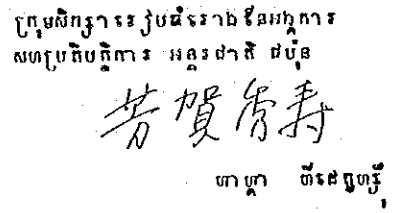 ក្រុមសិក្សារៀបចំរោងនៃអង្គការ
សហប្រតិបត្តិការ អន្តរជាតិ ជប៉ុន
芳賀秀寿
ហាហ្គា ហ៊ីដេតុហ្ស៊ី